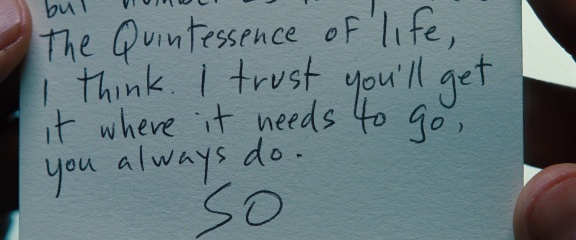 but number 25 is
The Quintessence of life,
I think. I trust you'll get
it where it needs to go,
you always do.
SO